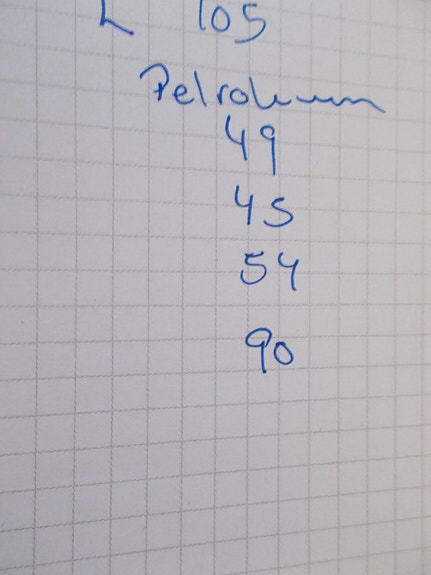 L 105
Petroleum
49
45
54
90